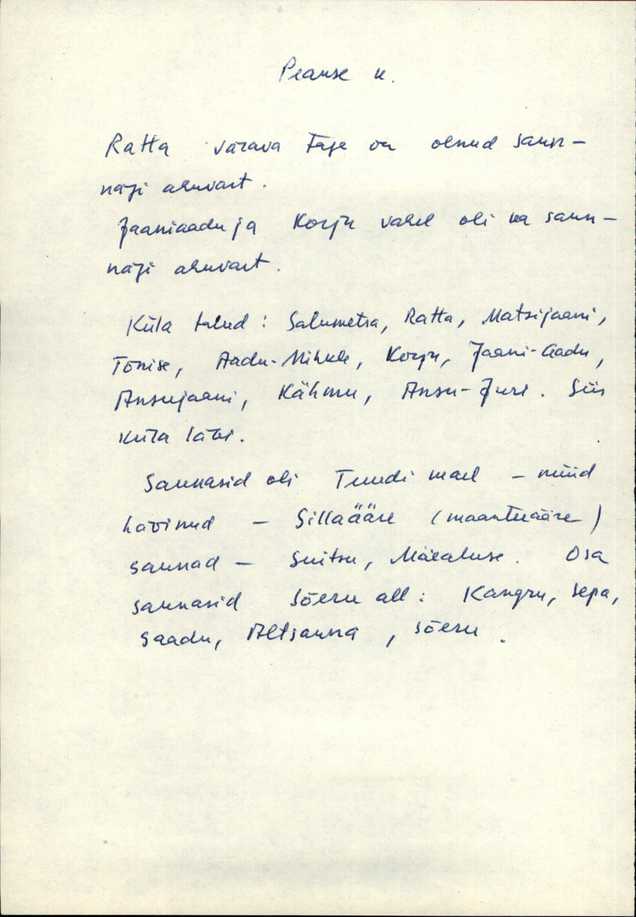 Peanse k.
Ratta värava taga on olnud saun-
naži ahervart.
Jaaniaadu ja Korju vahel oli ka saun-
naži ahervart.
Küla talud: Salumetsa, Ratta, Matsijaani,
Tõnise, Aadu-Mihkli, Korju, Jaani-Aadu,
Ansujaani, Kähmu, Ansu-Juri. Siis
küla läbi.
Saunasid oli Tuudi mäel - nüüd
hävinud - Sillaääre (maanteeääre)
saunad - Suitsu, Mäealuse. Osa
saunasid Sõeru all: Kangru, Sepa,
Saadu, Altsauna, Sõeru.